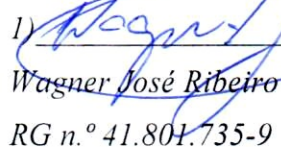 1) Wagner
Wagner José Ribeiro
RG n.º 41.801.735-9